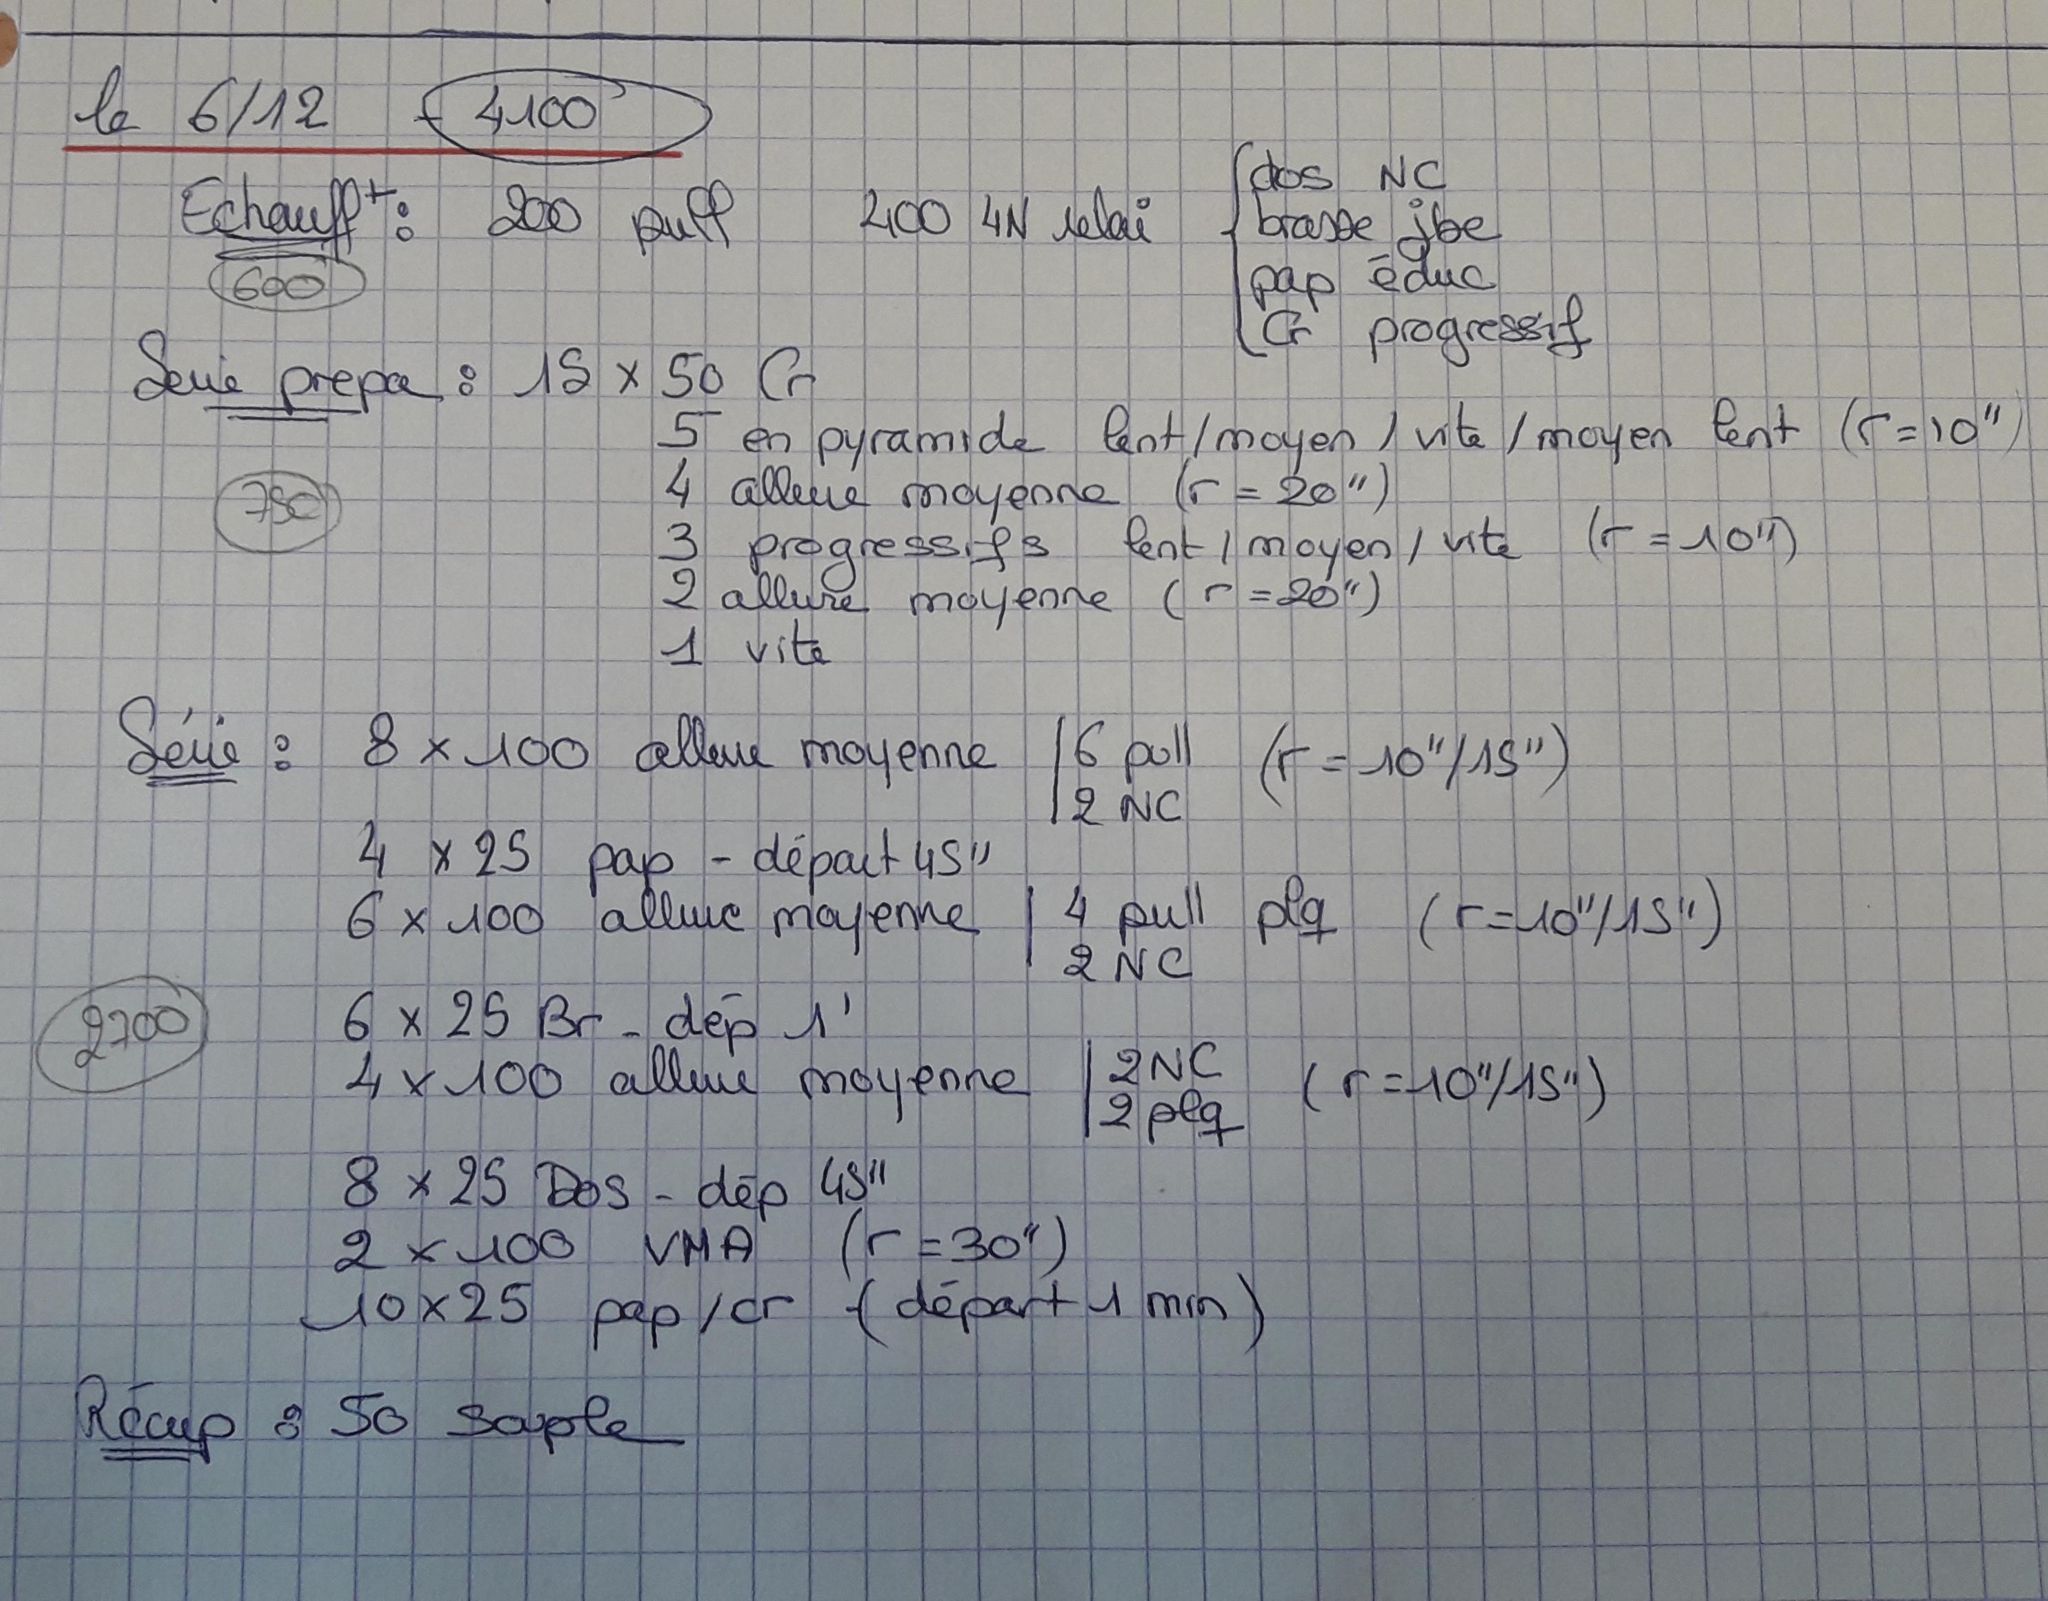 le 6/12 - 4100
Echauff^t : 200 pull 400 4N relai
dos NC
brasse jbe
pap éduc
Cr progressif
600
Serie prepa : 15 x 50 Cr
5 en pyramide lent/moyen/vite/moyen lent (r=10")
750
4 allure moyenne (r=20")
3 progressifs lent/moyen/vite (r=10")
2 allure moyenne (r=20")
1 vite
Série : 8 x 100 allure moyenne | 6 pull (r=10"/15")
2 NC
4 x 25 pap - départ 45"
6 x 100 allure moyenne | 4 pull plq (r=10"/15")
2 NC
2700
6 x 25 Br - dép 1'
4 x 100 allure moyenne | 2 NC (r=10"/15")
2 plq
8 x 25 Dos - dép 45"
2 x 100 VMA (r=30")
10 x 25 pap/cr (départ 1 min)
Récup : 50 souple